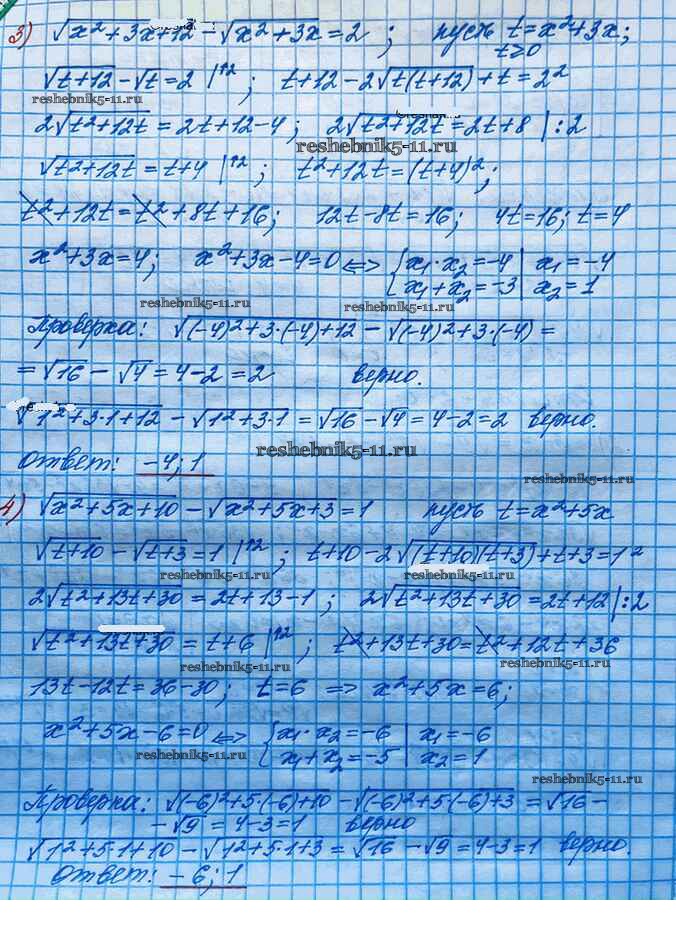 3) √(x²+3x+12) - √(x²+3x) = 2 ; пусть t = x²+3x;
t≥0
√(t+12) - √t = 2 |↑2 ; t+12-2√(t(t+12)) + t = 2²
reshebnik5-11.ru
2√(t²+12t) = 2t+12-4 ; 2√(t²+12t) = 2t+8 | :2
reshebnik5-11.ru
√(t²+12t) = t+4 |↑2 ; t²+12t = (t+4)²;
t²+12t = t²+8t+16; 12t-8t=16; 4t=16; t=4
x²+3x=4; x²+3x-4=0 <=> { x₁·x₂=-4 | x₁=-4
x₁+x₂=-3 | x₂=1
reshebnik5-11.ru reshebnik5-11.ru
Проверка: √((-4)²+3·(-4)+12) - √((-4)²+3·(-4)) =
= √16 - √4 = 4-2 = 2 верно.
√(1²+3·1+12) - √(1²+3·1) = √16 - √4 = 4-2 = 2 верно.
reshebnik5-11.ru
Ответ: -4; 1
reshebnik5-11.ru
4) √(x²+5x+10) - √(x²+5x+3) = 1 пусть t = x²+5x
√(t+10) - √(t+3) = 1 |↑2 ; t+10-2√((t+10)(t+3)) + t+3 = 1²
reshebnik5-11.ru reshebnik5-11.ru
2√(t²+13t+30) = 2t+13-1 ; 2√(t²+13t+30) = 2t+12 | :2
√(t²+13t+30) = t+6 |↑2 ; t²+13t+30 = t²+12t+36
reshebnik5-11.ru reshebnik5-11.ru
13t-12t=36-30 ; t=6 => x²+5x=6;
x²+5x-6=0 <=> { x₁·x₂=-6 | x₁=-6
x₁+x₂=-5 | x₂=1
reshebnik5-11.ru reshebnik5-11.ru
reshebnik5-11.ru
Проверка: √((-6)²+5·(-6)+10) - √((-6)²+5·(-6)+3) = √16 -
- √9 = 4-3=1 верно
√(1²+5·1+10) - √(1²+5·1+3) = √16 - √9 = 4-3=1 верно.
Ответ: -6; 1